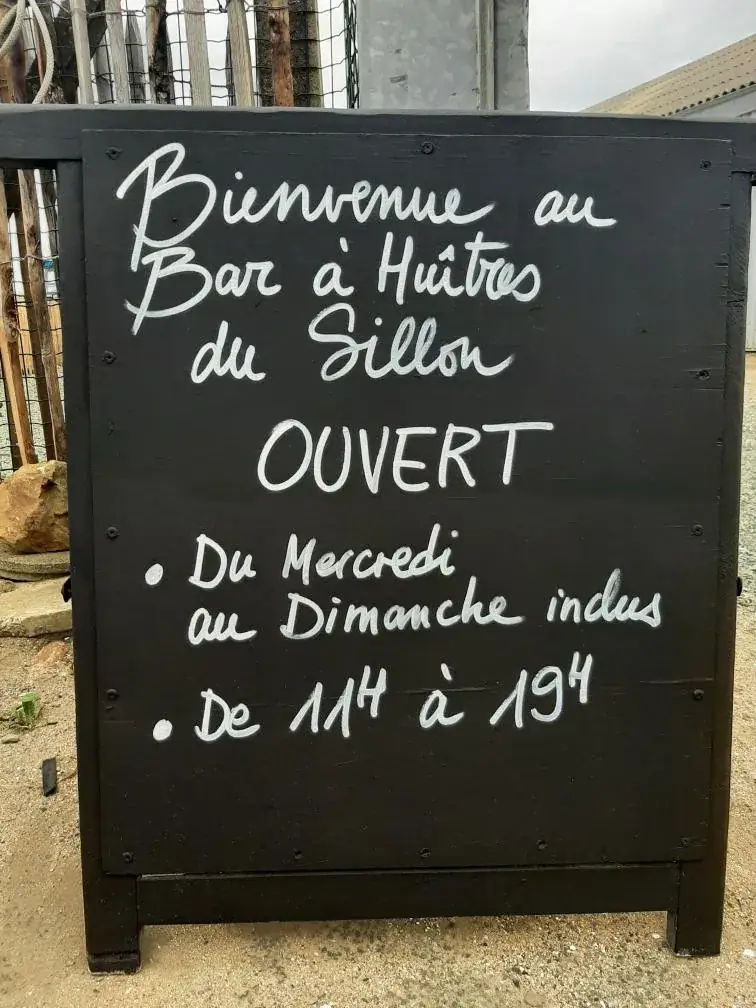 Bienvenue au
Bar à Huîtres
du Sillon
OUVERT
• Du Mercredi
au Dimanche inclus
• De 11H à 19H